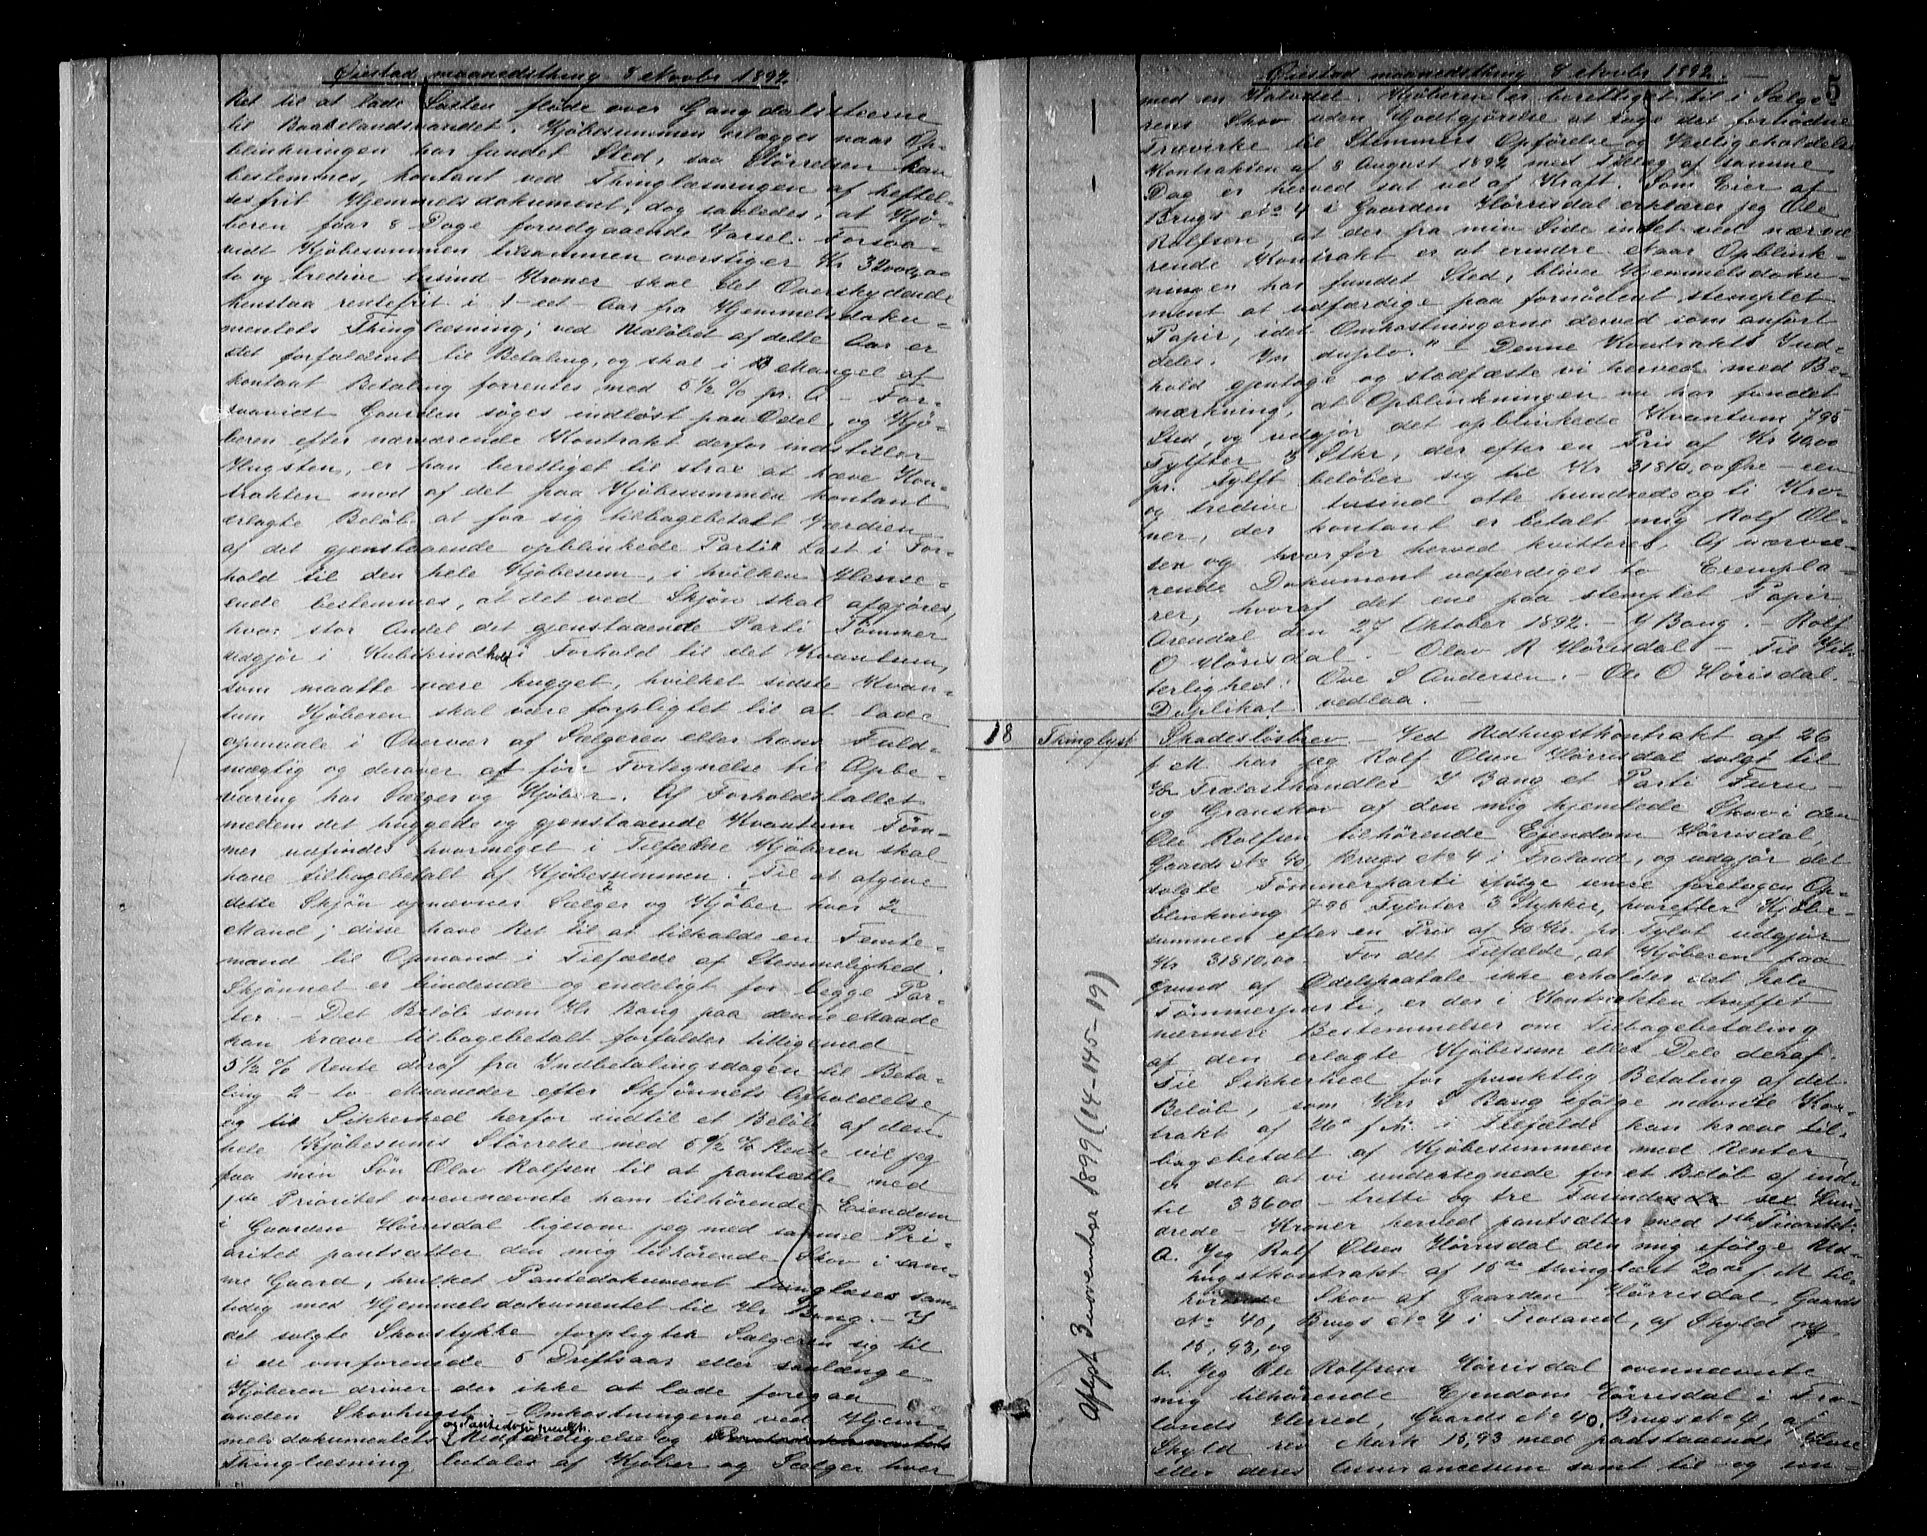 Øiestad maanedsthing 8 Novbr 1892.
Ret til at lade Lasten fløde over Gangdalsstierne
til Baaselandsvandet. Kjøbesummen erlægges naar Op-
blinkningen har fundet Sted, saa Størrelsen kan
bestemmes, kontant ved Thinglæsningen af heftel-
sesfrit Hjemmelsdokument, dog saaledes, at Kjø-
beren faar 8 Dage forudgaaende Varsel. Forsaa-
vidt Kjøbesummen tilsammen overstiger Kr 32000,00
to og tredive tusind Kroner skal det Overskydende
henstaa rentefrit i 1 - et - Aar fra Hjemmelsdoku-
mentets Thinglæsning; ved Udløbet af dette Aar er
det forfaldent til Betaling, og skal i Mangel af
kontant Betaling forrentes med 5 1/2 % pr. A. - For-
saavidt Gaarden søges indløst paa Odel, og Kjø-
beren efter nærværende Kontrakt derfor indstiller
Hugsten, er han berettiget til strax at hæve Kon-
trakten mod af det paa Kjøbesummen kontant
erlagte Beløb at faa sig tilbagebetalt Værdien
af det gjenstaaende opblinkede Parti Last i For-
hold til den hele Kjøbesum, i hvilken Hense-
ende bestemmes, at det ved Skjøn skal afgjøres,
hvor stor Andel det gjenstaaende Parti Tømmer
udgjør i Kubikindhold i Forhold til det Kvantum,
som maatte være hugget, hvilket sidste Kvan-
tum Kjøberen skal være forpligtet til at lade
opmaale i Overvær af Sælgeren eller hans Fuld-
mægtig og derover at føre Fortegnelse til Opbe-
varing hos Sælger og Kjøber. Af Forholdstallet
mellem det huggede og gjenstaaende Kvantum Tøm-
mer udfindes hvormeget i Tilfælde Kjøberen skal
have tilbagebetalt af Kjøbesummen. Til at afgive
dette Skjøn opnævner Sælger og Kjøber hver 2
Mand; disse have Ret til at tilkalde en Femte-
mand til Opmand i Tilfælde af Stemmelighed.
Skjønnet er bindende og endeligt for begge Par-
ter. - Det Beløb som Hr Bang paa denne Maade
kan kræve tilbagebetalt forfalder tilligemed
5 1/2 % Rente deraf fra Indbetalingsdagen til Beta-
ling 2 - to - Maaneder efter Skjønnets Afholdelse
og til Sikkerhed herfor indtil et Beløb af den
hele Kjøbesums Størrelse med 5 1/2 % Rente vil jeg
faa min Søn Olav Rolfsen til at pantsætte med
1ste Prioritet ovennævnte ham tilhørende Eiendom
i Gaarden Hørrisdal ligesom jeg med samme Pri-
oritet pantsætter den mig tilhørende Skov i sam-
me Gaard, hvilket Pantedokument tinglæses sam-
tidig med Hjemmelsdokumentet til Hr Bang. - I
det solgte Skovstykke forpligter Sælgeren sig til
i de omforenede 5 Driftsaar eller saalænge
Kjøberen driver der ikke at lade foregaa
anden Skovhugst. Omkostningerne ved Hjem-
melsdokumentets Udfærdigelse og
Thinglæsning betales af Kjøber og Sælger hver
Øiestad maanedsthing 8 Novbr 1892.
5
med en Halvdel. Kjøberen er berettiget til i Sælge-
rens Skov uden Godtgjørelse at tage det fornødne
Trævirke til Stemmers Opførelse og Vedligeholdelse
Kontrakten af 8 August 1892 med Tillæg af samme
Dag er herved sat ud af Kraft. Som Eier af
Brugs No 4 i Gaarden Hørrisdal erklærer jeg Ole
Rolfsen, at der fra min Side intet ved nærvæ-
rende Kontrakt er at erindre. Naar Opblink-
ningen har fundet Sted, bliver Hjemmelsdoku-
ment at udfærdige paa fornødent stemplet
Papir, idet Omkostningerne derved som anført
deles. In duplo." - Denne Kontrakts Ind-
hold gjentage og stadfæste vi herved med Be-
mærkning, at Opblinkningen nu har fundet
Sted, og udgjør det opblinkede Kvantum 795
Tylfter 3 Stkr, der efter en Pris af Kr 40,00
pr. Tylft beløber sig til Kr 31810,00 Øre - een
og tredive tusind otte hundrede og ti Kro-
ner, der kontant er betalt mig Rolf Ol-
sen og hvorfor herved kvitteres. Af nærvæ-
rende Dokument udfærdiges to Exempla-
rer, hvoraf det ene paa stemplet Papir.
Arendal den 27 Oktober 1892. - Y Bang. - Rolf
O Hørisdal. - Olav R Hørisdal - Til Vit-
terlighed: Ove S Andersen. - Ole O Hørisdal. -
Duplikat vedlaa. -
18 Thinglyst Skadesløsbrev. - Ved Udhugstkontrakt af 26
f M. har jeg Rolf Olsen Hørrisdal solgt til
Hr Trælasthandler Y Bang et Parti Furu-
og Granskov af den mig hjemlede Skov i den
Ole Rolfsen tilhørende Eiendom Hørrisdal,
Gaards No 40, Brugs No 4 i Froland, og udgjør det
solgte Tømmerparti ifølge senere foretagen Op-
blinkning 795 Tylvter 3 Stykker, hvorefter Kjøbe-
summen efter en Pris af 40 Kr. pr. Tylvt udgjør
Kr 31810,00. For det Tilfælde, at Kjøberen paa
Grund af Odelspaatale ikke erholder det hele
Tømmerparti, er der i Kontrakten truffet
nærmere Bestemmelser om Tilbagebetaling
af den erlagte Kjøbesum eller Dele deraf.
Til Sikkerhed for punktlig Betaling af det
Beløb, som Hr Y Bang ifølge nævnte Kon-
trakt af 26 f M. i Tilfælde kan kræve til-
bagebetalt af Kjøbesummen med Renter,
er det at vi undertegnede for et Beløb af ind-
til 33600 - tretti og tre Tusinde sex Hun-
drede - Kroner herved pantsætter med 1ste Prioritet:
a. Jeg Rolf Olsen Hørrisdal den mig ifølge Ud-
hugstkontrakt af 15de thinglæst 20de f. M til-
hørende Skov af Gaarden Hørrisdal, Gaards
No 40, Brugs No 4 i Froland, af Skyld
15,93, og
b. Jeg Ole Rolfsen Hørrisdal ovennævnte
mig tilhørende Ejendom Hørrisdal i Fro-
lands Herred, Gaards No 40, Brugs No 4, af
Skyld rev Mark 15,93 med paastaaende Huse
eller deres Assurancesum samt til- og un-
Aflyst 3 november 1899 (14-145-19)